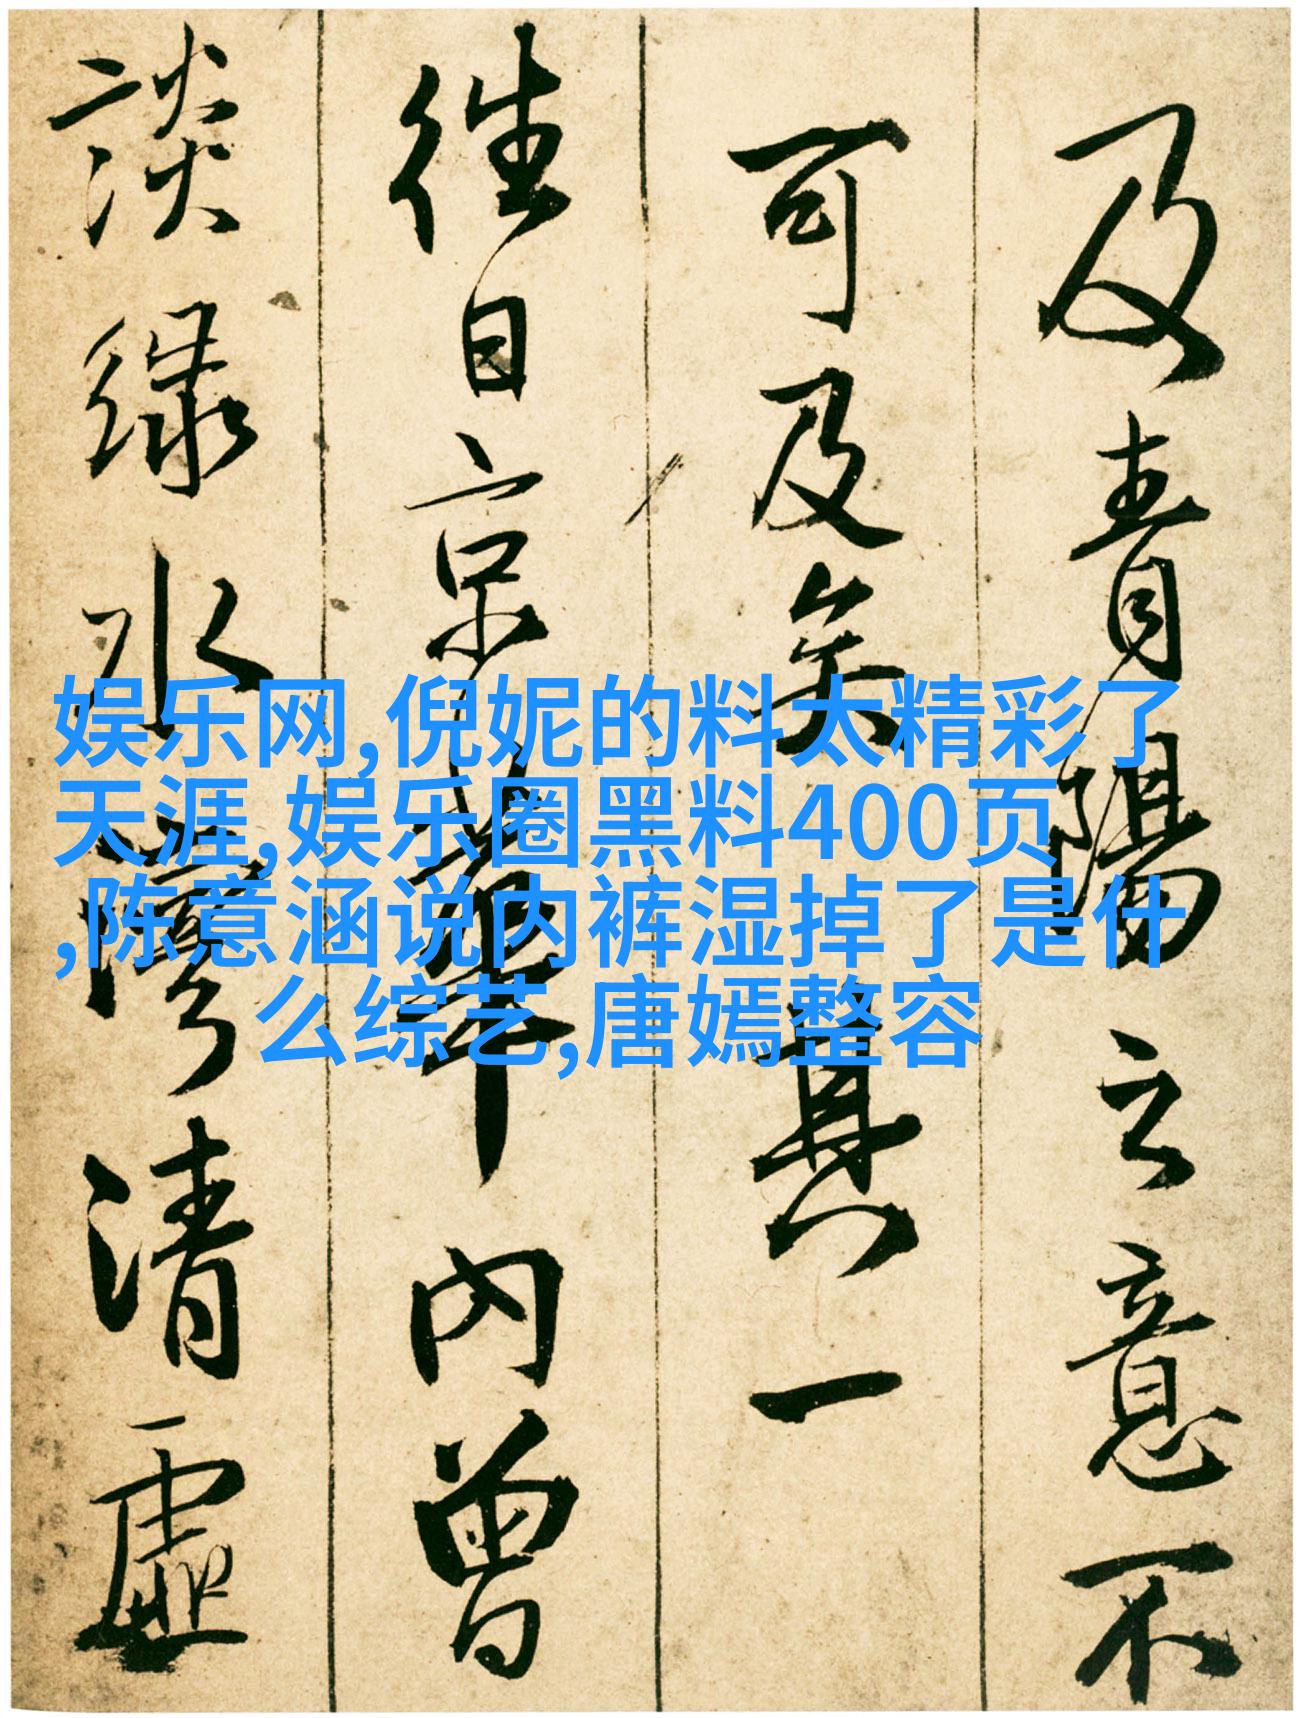 及青陽之意不
可及矣其一
往日京華內曾
談綠水灣清虛
娱乐网,倪妮的料太精彩了
天涯,娱乐圈黑料400页
,陈意涵说内裤湿掉了是什
么综艺,唐嫣整容